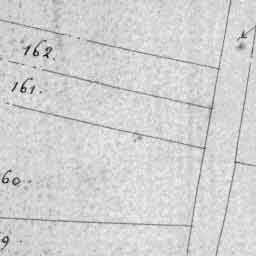 162.
161.
60.
9.